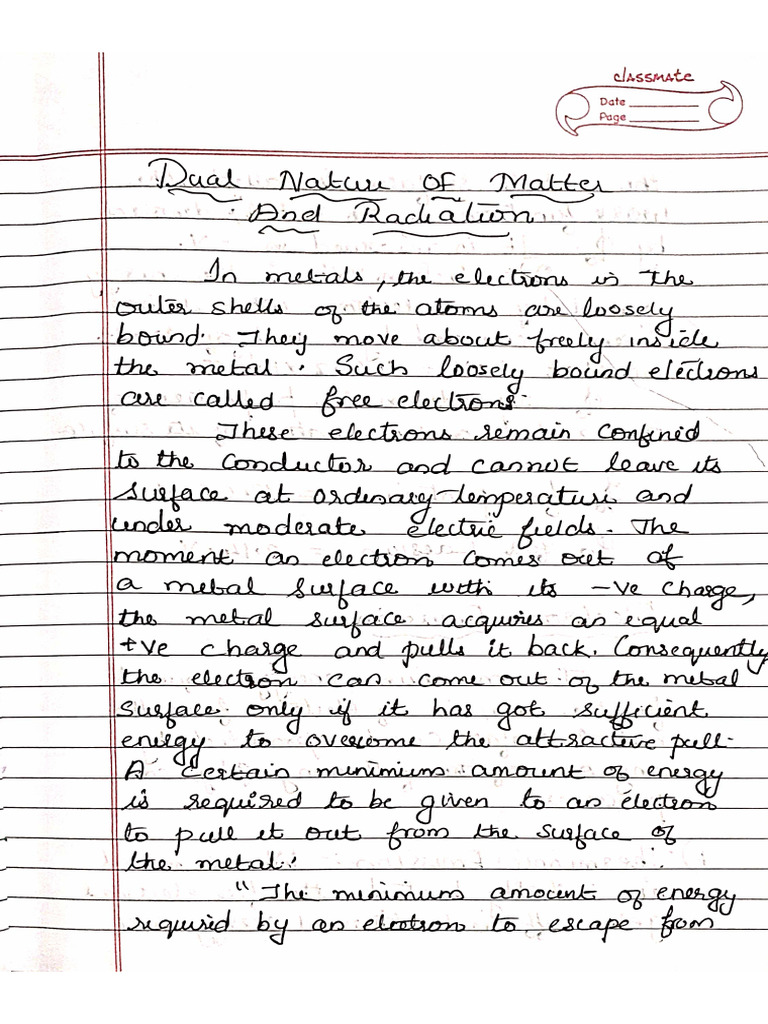 classmate
Date
Page
Dual Nature Of Matter
And Radiation
In metals, the electrons in the
outer shells of the atoms are loosely
bound. They move about freely inside
the metal. Such loosely bound electrons
are called free electrons.
These electrons remain confined
to the conductor and cannot leave its
surface at ordinary temperature and
under moderate electric fields. The
moment an electron comes out of
a metal surface with its -ve charge,
the metal surface acquires an equal
+ve charge and pulls it back. Consequently
the electron can come out of the metal
surface only if it has got sufficient
energy to overcome the attractive pull.
A certain minimum amount of energy
is required to be given to an electron
to pull it out from the surface of
the metal.
"The minimum amount of energy
required by an electron to escape from